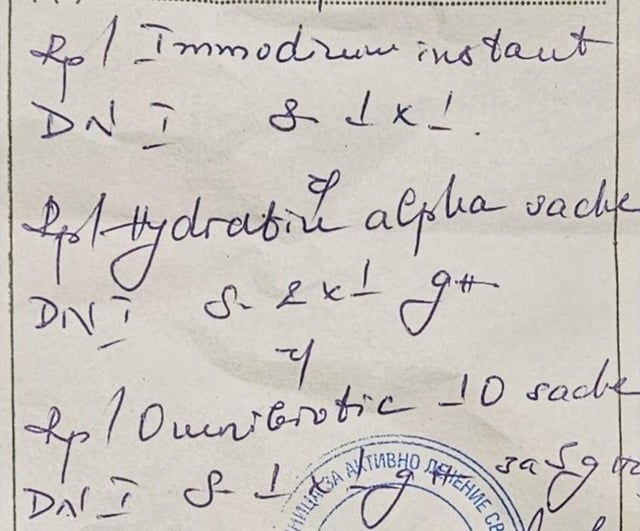 Rp/ Immodium instant
DN I S- 1 x 1.
Rp/ Hydratin alpha sache
DN I S- 2 x 1 дн
Rp/ Omnibiotic 10 sache
DN I S- 1 x 1 дн за 5 дни
ЗА АКТИВНО ЛЕЧЕНИЕ СВ